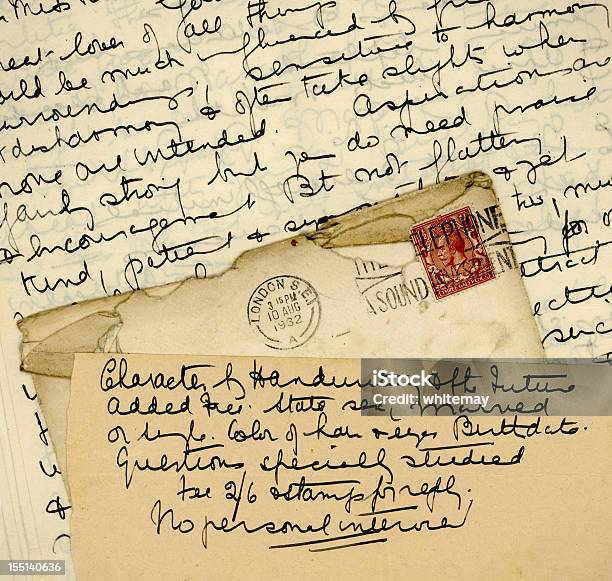 great lover of all things
would be much influenced by
surroundings, sensitive to harmony
& disharmony & often take slights when
none are intended. Aspirations are
fairly strong but you do need praise
& encouragement But not flattery
Kind, patient & & yet
TELEPHONE
A SOUND
LONDON S.E.1
3 15 PM
10 AUG
1932
A
Character by Handwriting of the Future
added Fee. State sex, married
or single. Color of hair & eyes Birthdate.
Questions specially studied
Fee 2/6 & stamps for reply.
No personal interview
iStock
Credit: whitemay
155140636